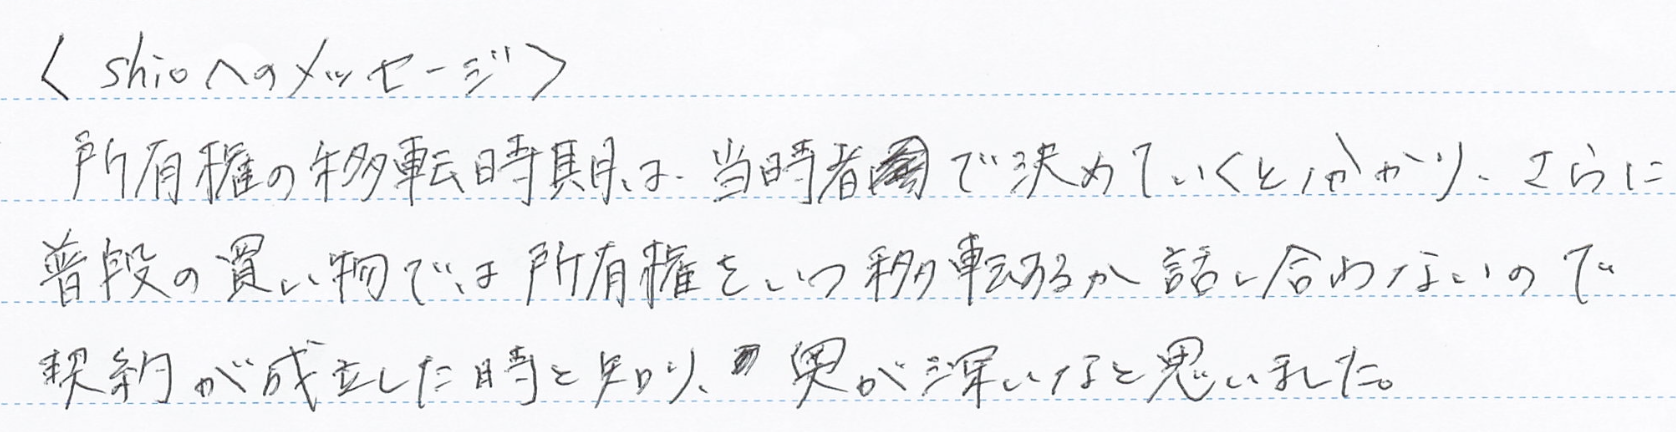 〈shioへのメッセージ〉
所有権の移転時期は、当時者で決めていくと分かり、さらに
普段の買い物では所有権をいつ移転するか話し合わないので
契約が成立した時と知り、奥が深いなと思いました。